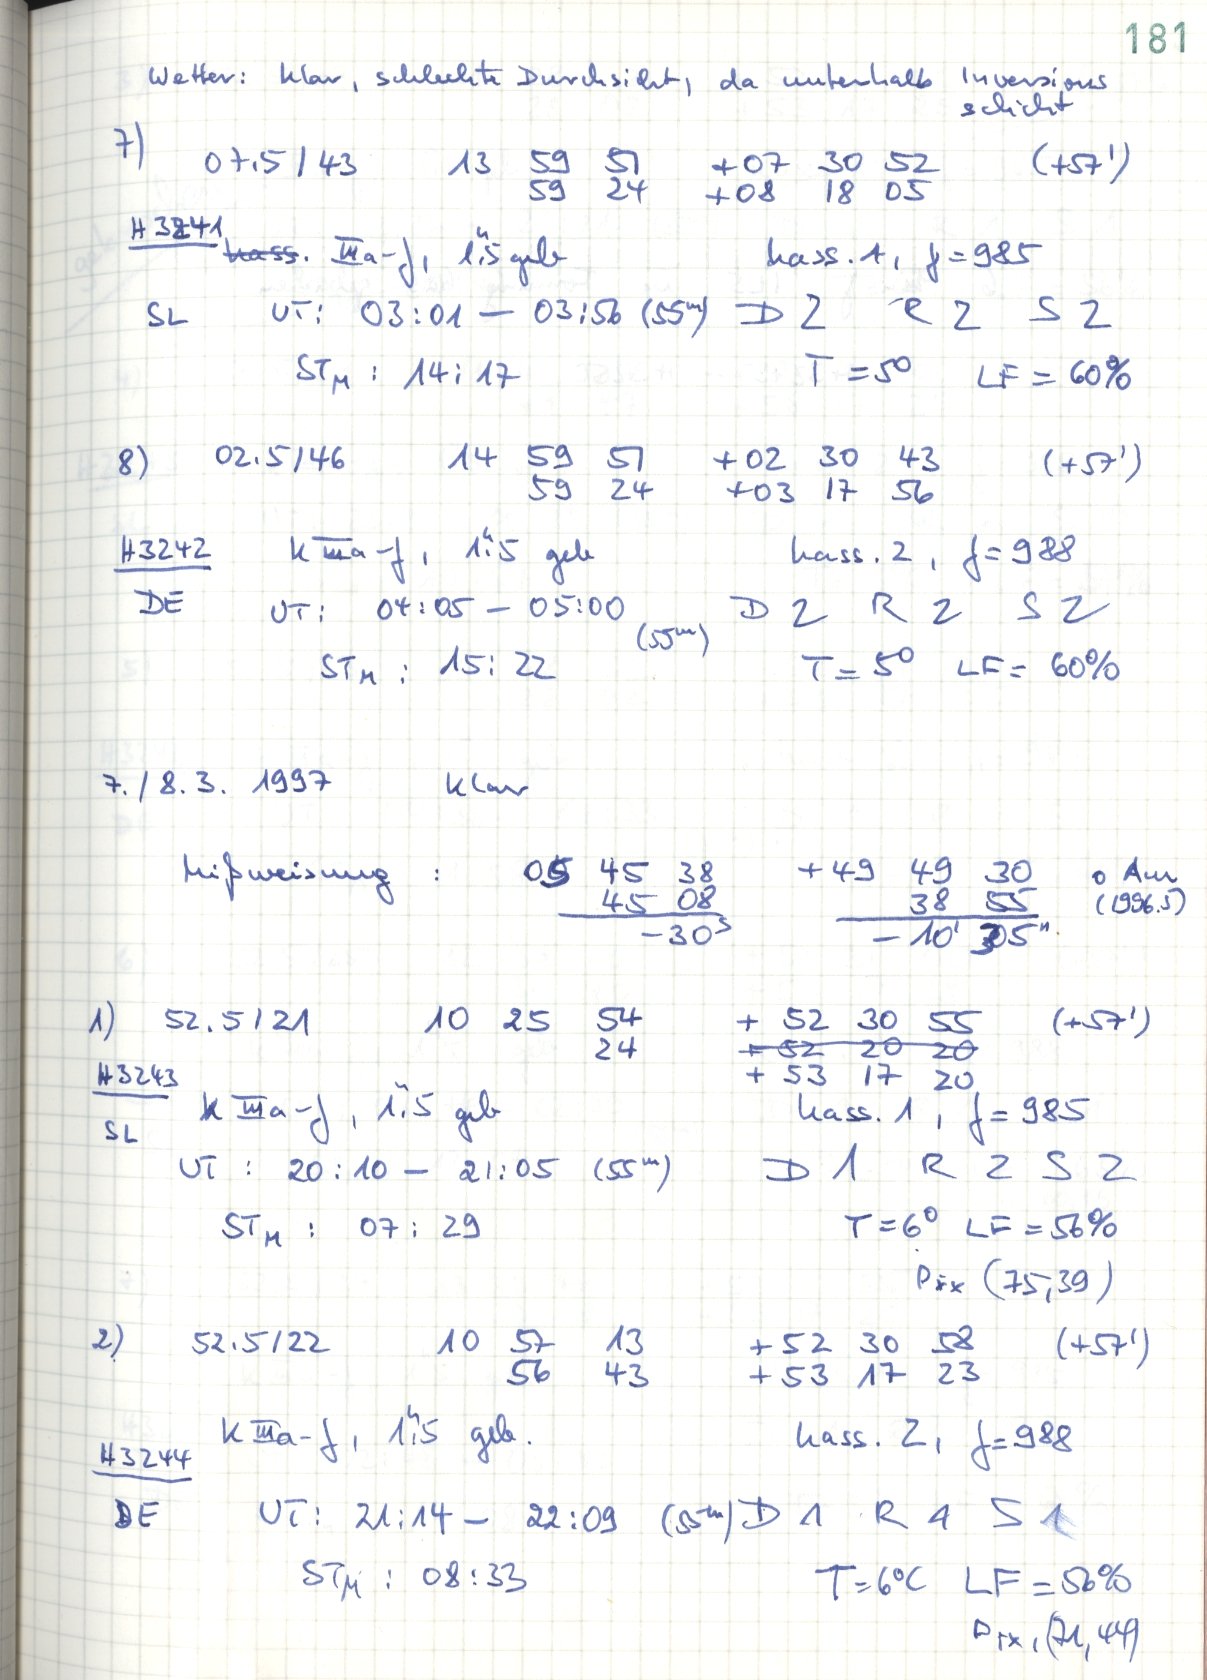 181
Wetter: klar, schlechte Durchsicht, da unterhalb Inversions
schicht
7) 07.5/43 13 59 51 +07 30 52 (+57')
59 24 +08 18 05
H3241 kass. IIIa-f, 1".5 geb kass. 1, f=985
SL UT: 03:01 – 03:56 (55m) D 2 R 2 S 2
STM : 14:17 T = 5° LF = 60%
8) 02.5/46 14 59 51 +02 30 43 (+57')
59 24 +03 17 56
H3242 K IIIa-f, 1".5 geb kass. 2, f=988
DE UT: 04:05 – 05:00 (55m) D 2 R 2 S 2
STM : 15:22 T = 5° LF = 60%
7./8.3. 1997 klar
Mißweisung : 05 45 38 +49 49 30 o Aur
45 08 38 55 (1996.5)
-30s -10' 05".
1) 52.5/21 10 25 54 + 52 30 55 (+57')
24 + 52 20 20
+ 53 17 20
H3243 K IIIa-f, 1".5 geb kass. 1, f=985
SL
UT : 20:10 – 21:05 (55m) D 1 R 2 S 2
STM : 07:29 T=6° LF=56%
Pix (75,39)
2) 52.5/22 10 57 13 +52 30 58 (+57')
56 43 +53 17 23
K IIIa-f, 1".5 geb. kass. 2, f=988
H3244
DE UT: 21:14 – 22:09 (55m) D 1 R 1 S 1
STM : 08:33 T=6°C LF=56%
Pix, (71,44)